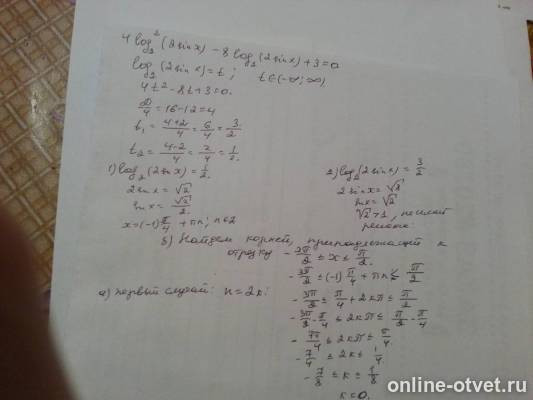 4 log₂² (2 sin x) - 8 log₂ (2 sin x) + 3 = 0
log₂ (2 sin x) = t ; t ∈ (-∞; ∞)
4t² - 8t + 3 = 0.
D/4 = 16 - 12 = 4
t₁ = (4+2)/4 = 6/4 = 3/2
t₂ = (4-2)/4 = 2/4 = 1/2.
1) log₂ (2 sin x) = 1/2.
2 sin x = √2
sin x = √2/2.
x = (-1)ⁿ π/4 + πn; n ∈ Z
2) log₂ (2 sin x) = 3/2
2 sin x = √8
sin x = √2
√2 > 1, не имеет
решения.
3) Найдем корней, принадлежащей к
отрезку -3π/2 ≤ x ≤ π/2.
-3π/2 ≤ (-1)ⁿ π/4 + πn ≤ π/2
а) первый случай: n = 2k:
-3π/2 ≤ π/4 + 2kπ ≤ π/2
-3π/2 - π/4 ≤ 2kπ ≤ π/2 - π/4
-7π/4 ≤ 2kπ ≤ π/4
-7/4 ≤ 2k ≤ 1/4
-7/8 ≤ k ≤ 1/8
k = 0.
online-otvet.ru